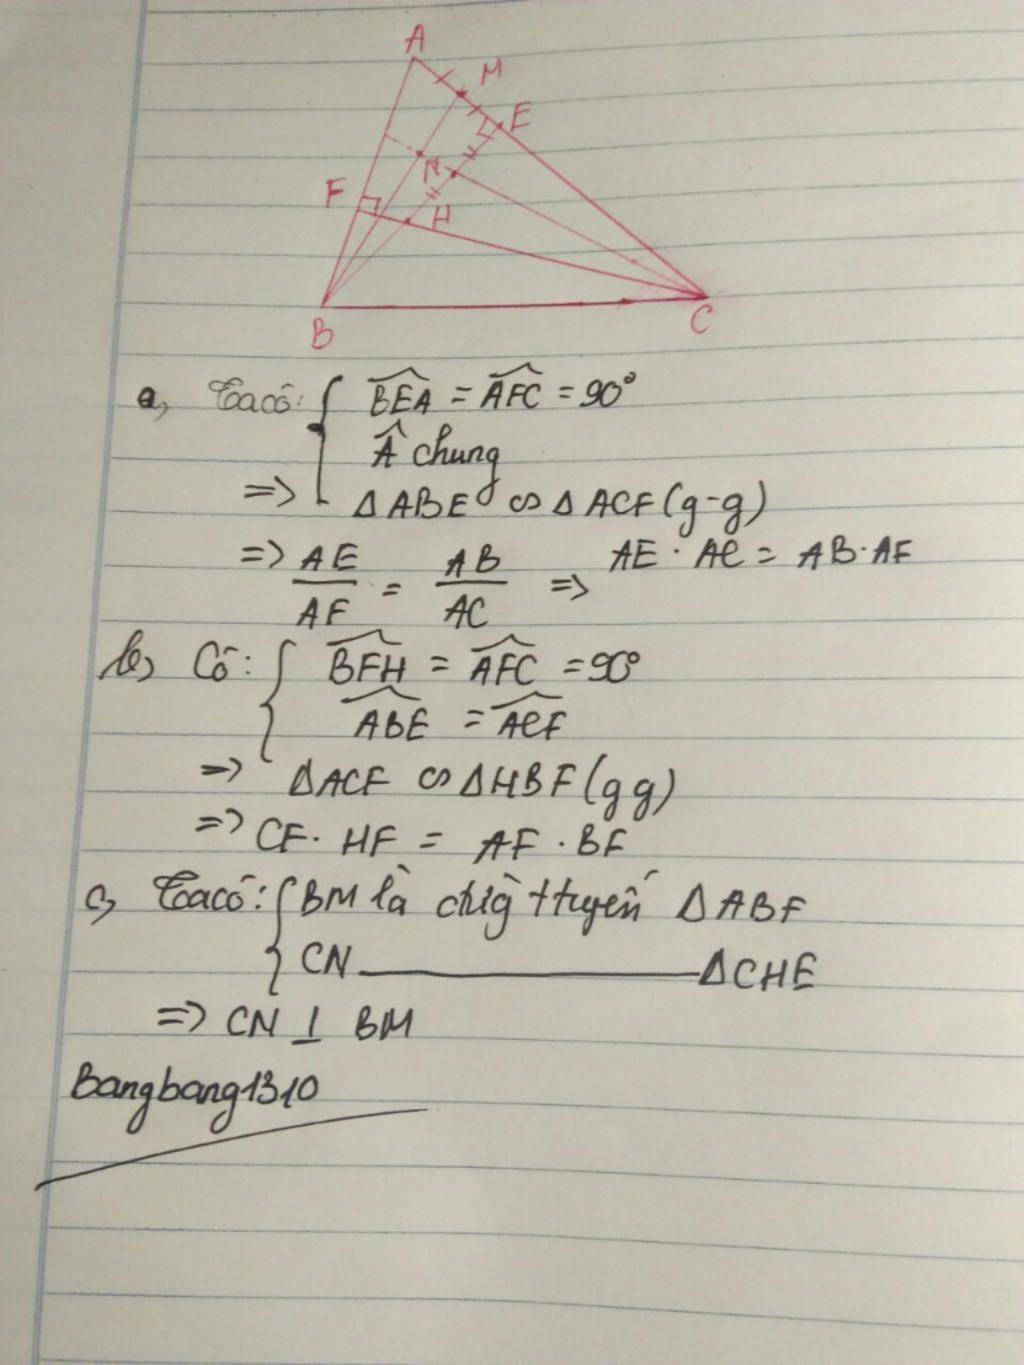 A
M
E
N
F
H
B
C
a, Ta có: { BEA = AFC = 90°
 chung
=> ΔABE ∽ ΔACF (g-g)
=> AE/AF = AB/AC => AE . AC = AB . AF
b, Có: { BFH = AFC = 90°
ABE = ACF
=> ΔACF ∽ ΔHBF (gg)
=> CF . HF = AF . BF
c, Ta có: { BM là tuyến ΔABF
CN ———— ΔCHE
=> CN ⊥ BM
Bangbang1310